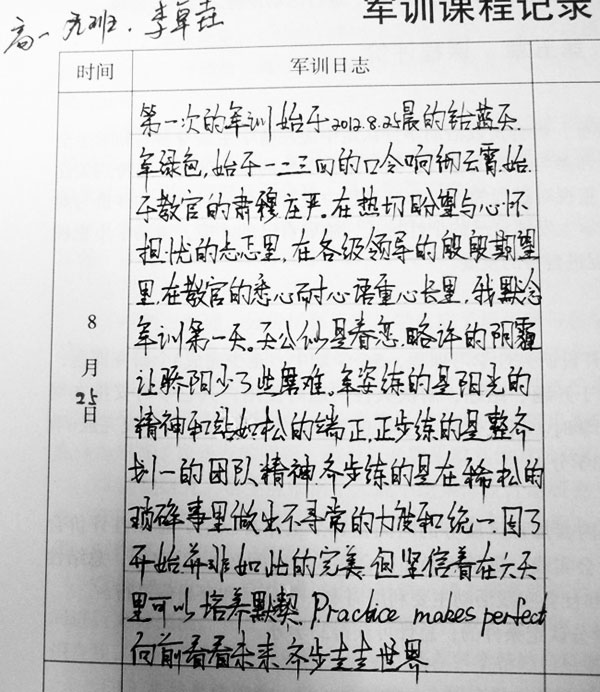 军训课程记录
高一 班. 李卓垚
时间 军训日志
第一次的军训始于2012.8.25晨的铅蓝天.
军绿色,始于一二三四的口令响彻云霄.始
于教官的肃穆庄严.在热切盼望与心怀
担忧的忐忑里,在各级领导的殷殷期望
里,在教官的悉心耐心语重心长里,我默念
军训第一天。天公似是眷恋.略许的阴霾
让骄阳少了些磨难.军姿练的是阳光的
精神和站如松的端正,正步练的是整齐
划一的团队精神.齐步练的是在稀松的
琐碎事里做出不寻常的力度和统一.固了
开始并非如此的完美.但坚信着在六天
里可以培养默契. Practice makes perfect
向前看看未来.齐步走走世界.
8
月
25
日